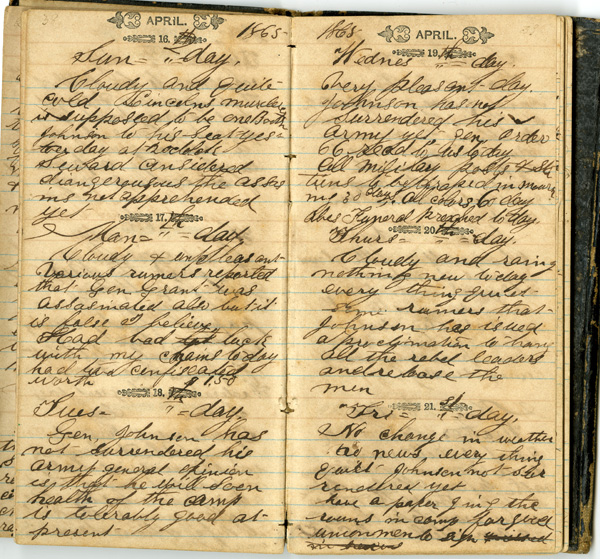 APRIL. 1865-
16. th
Sun= "= day.
Cloudy and quite
cold Lincerns murder
is supposed to be one Booth
Johnson to his seat yes
terday at 11 oclock
Seward considered
dangergerous the assas
ins not apprehended
yet
17. th
Mon= "= day
Cloudy & unpleasant
various rumers reported
that Gen Grant was
assasinated also but it
is false I believe
Had bad luck
with my chains to day
had two confiscated
worth $1.50
18. th
Tues= "= day.
Gen. Johnson has
not surrendered his
army general opinion
is that he will soon
health of the camp
is tolerably good at
present
1865- APRIL.
19. th
Wednes "= day.
Very pleasant day.
Johnson has not
surrendered his
army yet. gen order
66 read to us to day
all military posts & sta
tions to be draped in mourn
ing 30 days, all colors, to day
Abes Funeral preached to day.
20. th
Thurs= "= day.
Cloudy and rainy
nothing new to day
every thing quiet-
some rumers that
Johnson has issued
a proclimation to hang
all the rebel leaders
and release the
men
21. st
Fri= "= day,
No change in weather
no news, every thing
quiet Johnson not sur
rendered yet
have a paper going the
rouns in camp for good
union men to sign